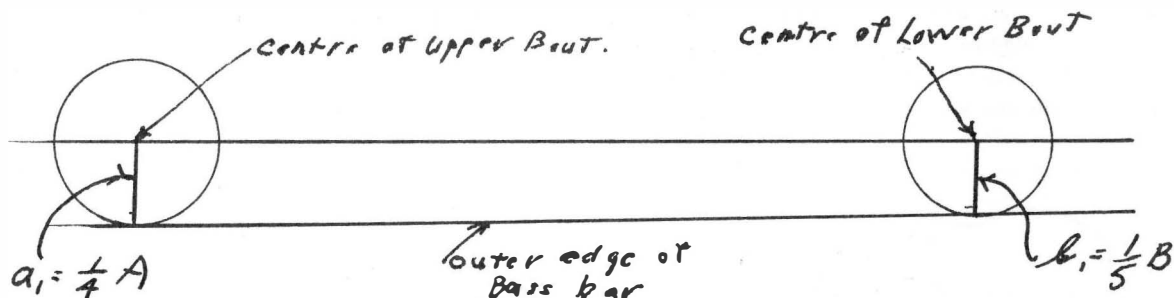 Centre of Upper Bout.
Centre of Lower Bout
a₁ = 1/4 A
outer edge of
Bass bar
b₁ = 1/5 B